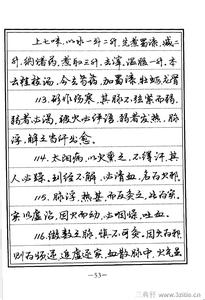 上七味，以水一斗二升，先煮蜀漆，减二
升，纳诸药，煮取三升，去滓，温服一升。本
云桂枝汤，今去芍药，加蜀漆、牡蛎、龙骨
113.形作伤寒，其脉不弦紧而弱。
弱者必渴，被火必谵语。弱者发热，脉
浮，解之当汗出愈。
114.太阳病，以火熏之，不得汗，其
人必躁，到经不解，必清血，名为火邪
115.脉浮，热甚，而反灸之，此为实。
实以虚治，因火而动，必咽燥，吐血。
116.微数之脉，慎不可灸。因火为邪，
则为烦逆，追虚逐实，血散脉中，火气虽
—53—
三典轩 www.32xie.cn